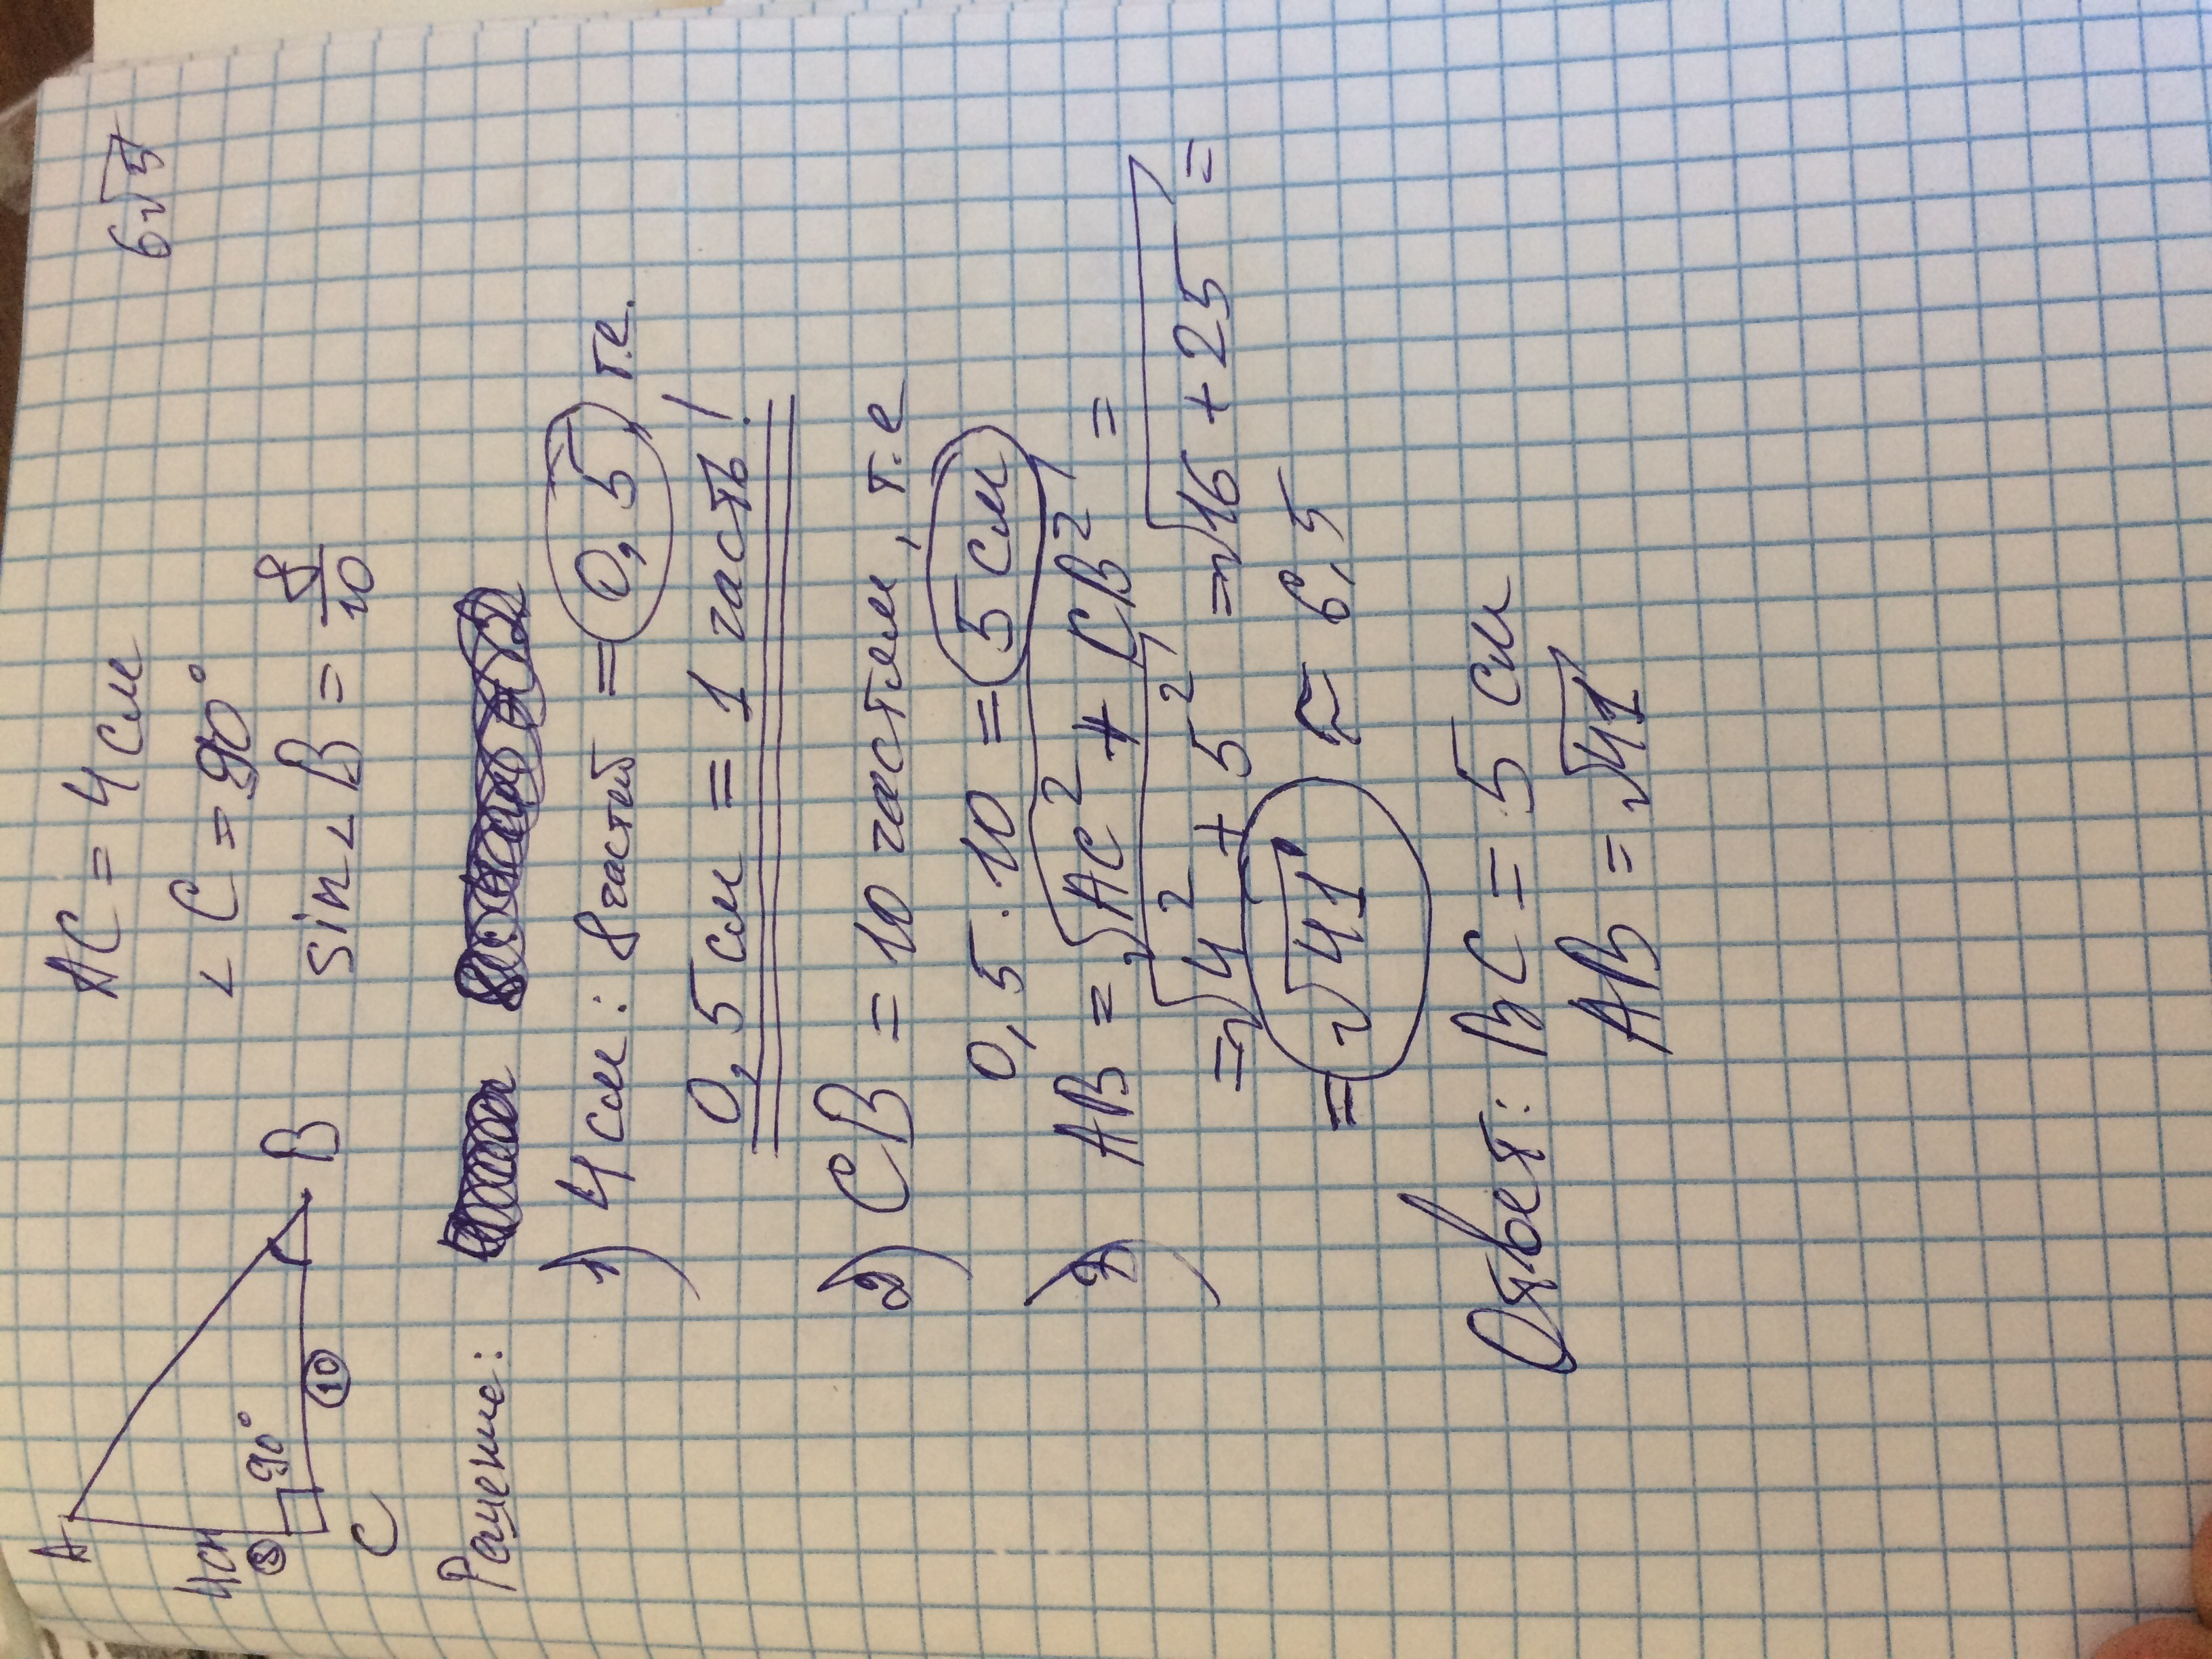 AC = 4 см
6√5
∠C = 90°
sin∠B = 8/10
A
4см
8
90°
C
10
B
Решение:
1) 4 см : 8 частей = 0,5, т.е.
0,5 см = 1 часть!
2) CB = 10 частям, т.е
0,5 · 10 = 5 см
AB = √AC² + CB² =
= √4² + 5² = √16 + 25 =
= √41 ≈ 6,5
Ответ: BC = 5 см
AB = √41